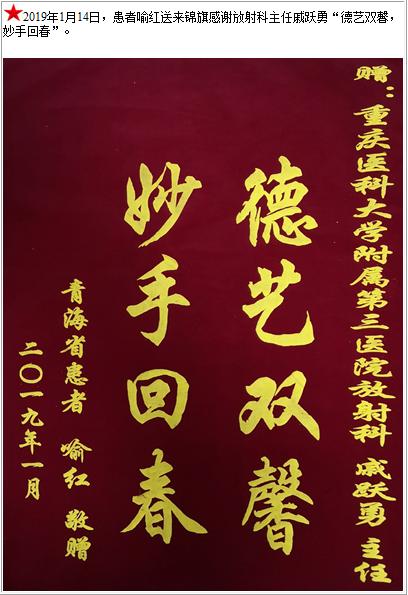 ★2019年1月14日，患者喻红送来锦旗感谢放射科主任戚跃勇“德艺双馨，
妙手回春”。
赠：重庆医科大学附属第三医院放射科 戚跃勇 主任
德艺双馨
妙手回春
青海省患者 喻红 敬赠
二〇一九年一月